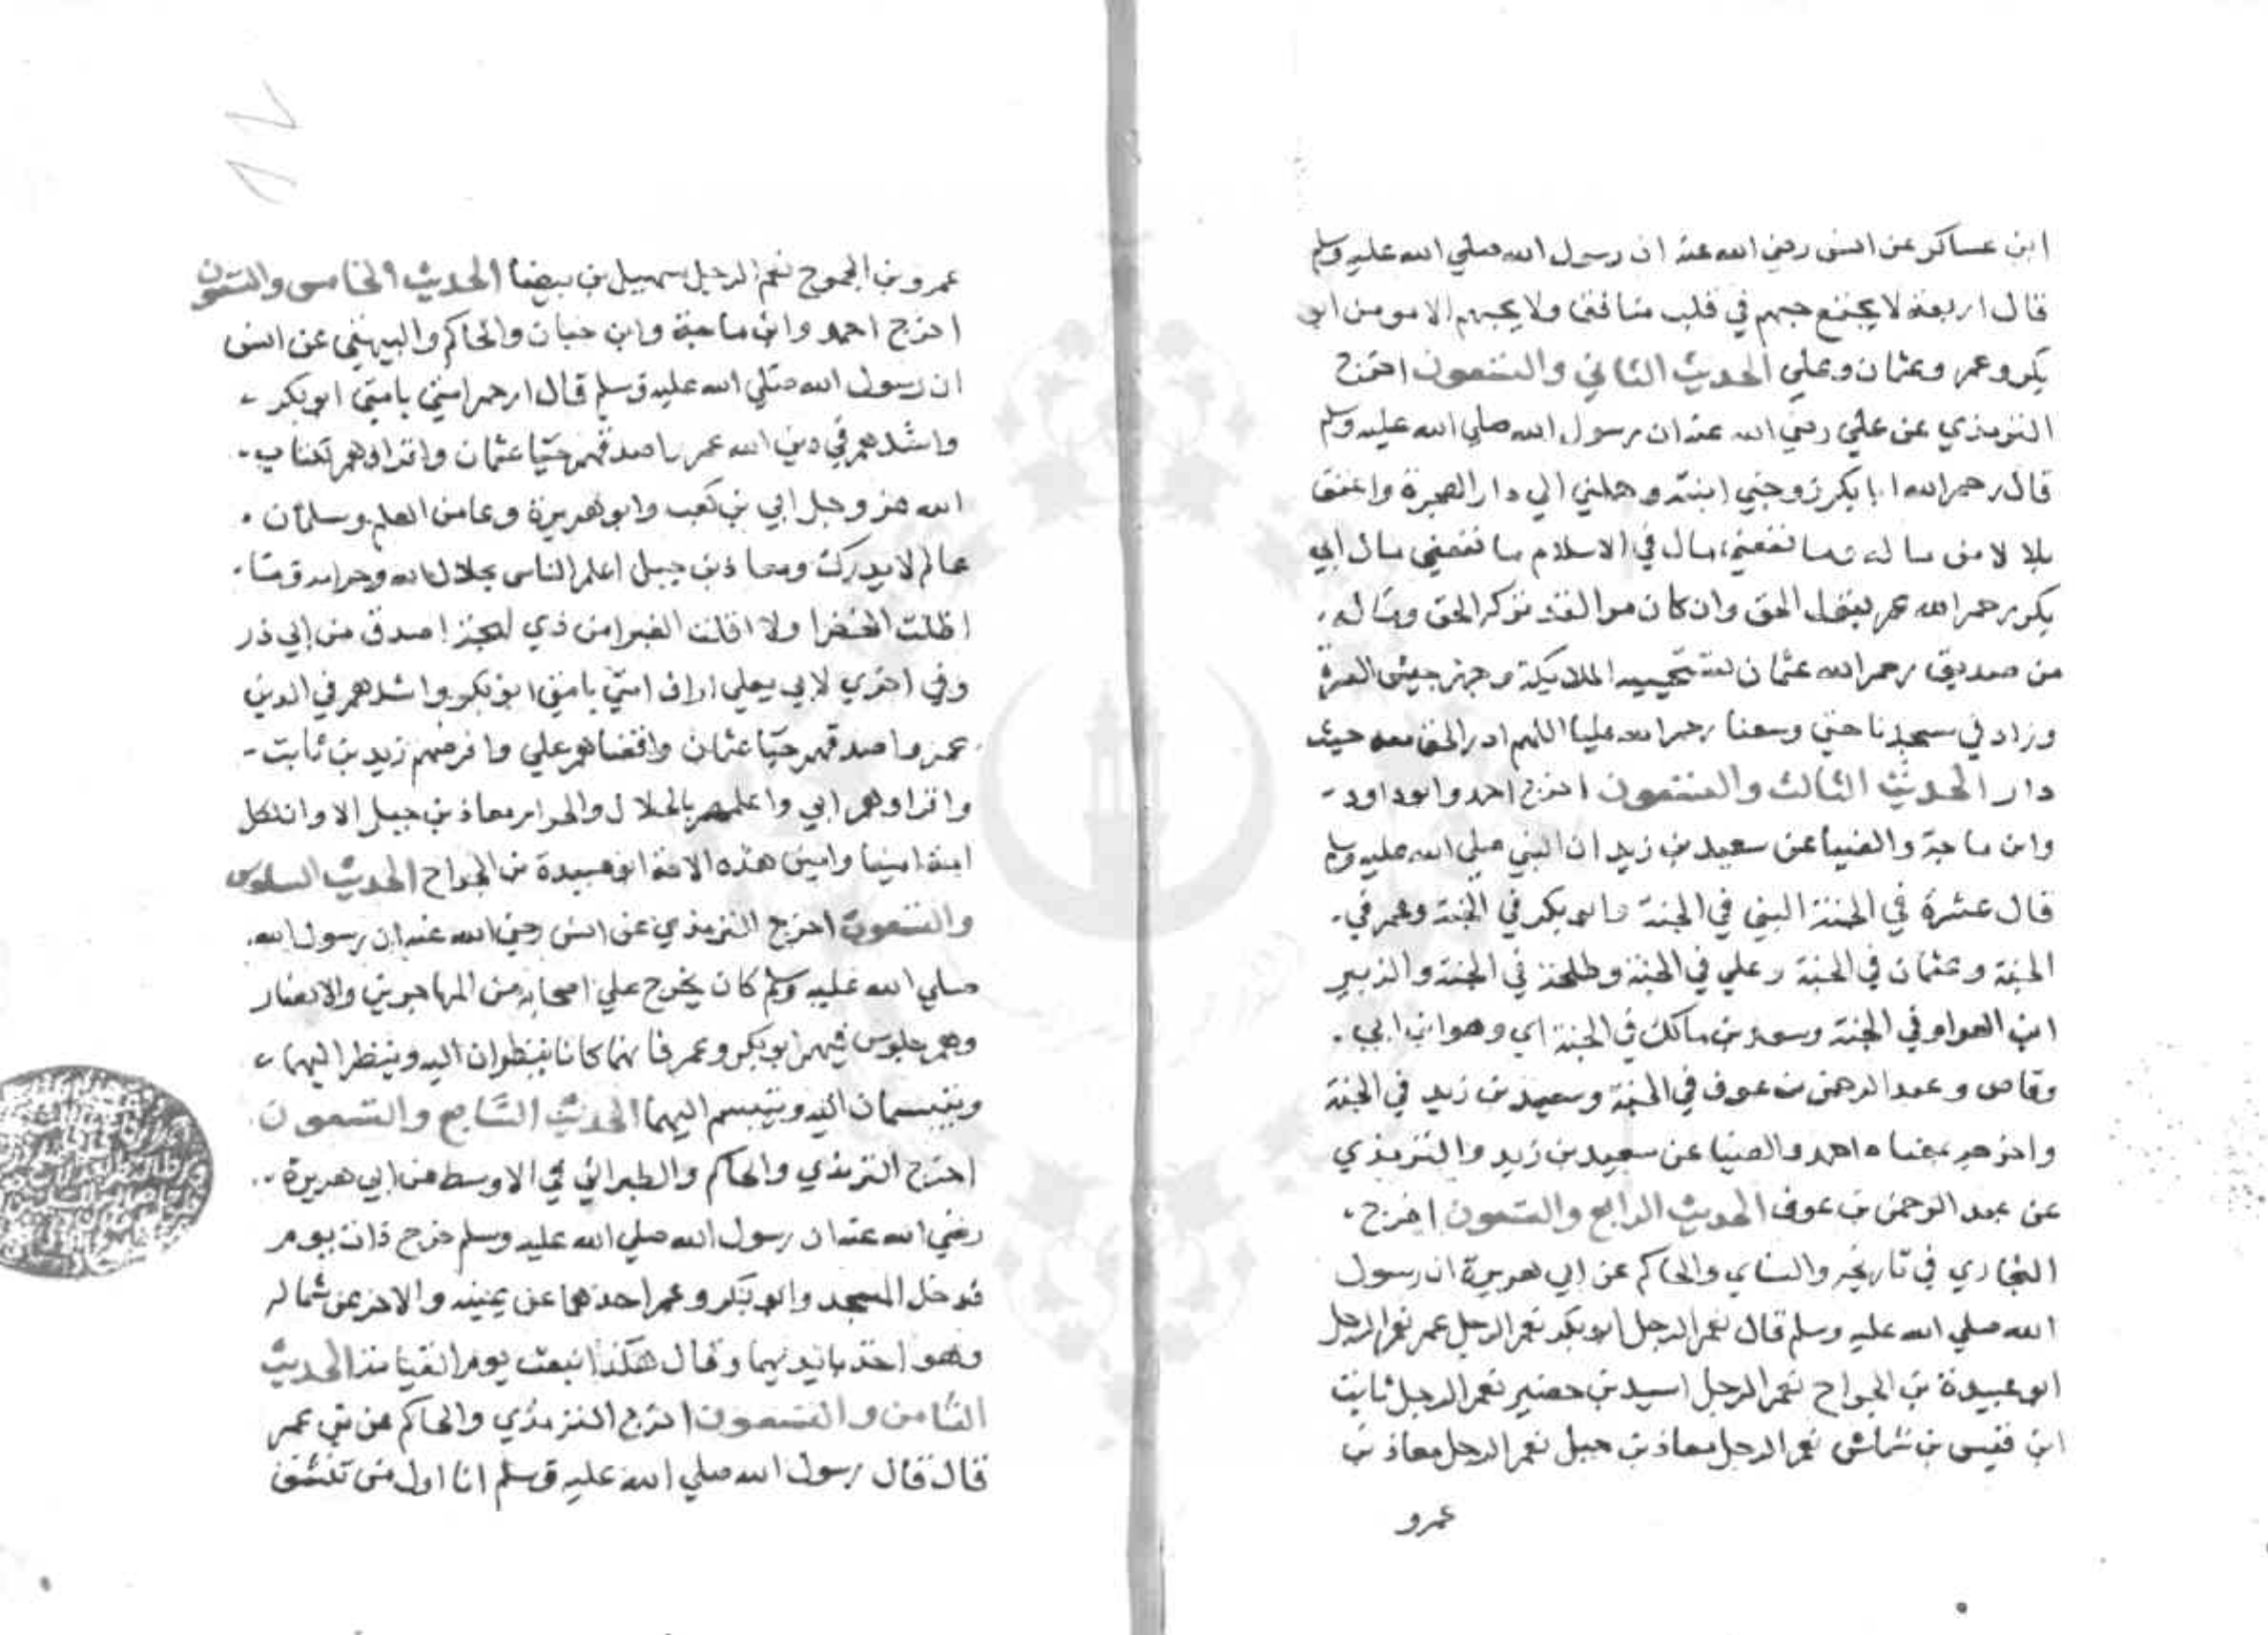 ابن عساكر عن انس رضي الله عنه ان رسول الله صلي الله عليه وسلم
قال اربعة لا يجتمع حبهم في قلب منافق ولا يحبهم الا مومن ابو
بكر وعمر وعثمان وعلي الحديث الثاني والتسعون اخرج
الترمذي عن علي رضي الله عنه ان رسول الله صلي الله عليه وسلم
قال رحم الله ابا بكر زوجني ابنته وحملني الي دار الهجرة واعتق
بلالا من ماله وما نفعني مال في الاسلام ما نفعني مال ابي
بكر رحم الله عمر يقول الحق وان كان مرا لقد تركه الحق وماله
من صديق رحم الله عثمان تستحييه الملايكة وجهز جيش العسرة
وزاد في مسجدنا حتي وسعنا رحم الله عليا اللهم ادر الحق معه حيث
دار الحديث الثالث والتسعون اخرج احمد وابو داود
وابن ماجة والضيا عن سعيد بن زيد ان النبي صلي الله عليه وسلم
قال عشرة في الجنة النبي في الجنة وابو بكر في الجنة وعمر في
الجنة وعثمان في الجنة وعلي في الجنة وطلحة في الجنة والزبير
ابن العوام في الجنة وسعد بن مالك في الجنة اي وهو ابن ابي
وقاص وعبد الرحمن بن عوف في الجنة وسعيد بن زيد في الجنة
واخرجه بمعناه احمد والضيا عن سعيد بن زيد والترمذي
عن عبد الرحمن بن عوف الحديث الرابع والتسعون اخرج
البخاري في تاريخه والنساي والحاكم عن ابي هريرة ان رسول
الله صلي الله عليه وسلم قال نعم الرجل ابو بكر نعم الرجل عمر نعم الرجل
ابو عبيدة بن الجراح نعم الرجل اسيد بن حضير نعم الرجل ثابت
ابن قيس بن شماس نعم الرجل معاذ بن جبل نعم الرجل معاذ بن
عمرو
عمرو بن الجموح نعم الرجل سهيل بن بيضا الحديث الخامس والتسعون
اخرج احمد وابن ماجة وابن حبان والحاكم والبيهقي عن انس
ان رسول الله صلي الله عليه وسلم قال ارحم امتي بامتي ابو بكر
واشدهم في دين الله عمر واصدقهم حيا عثمان واقراوهم لكتاب
الله عز وجل ابي بن كعب وابو هريرة وعا من العلم وسلمان
عالم لا يدرك ومعاذ بن جبل اعلم الناس بحلال الله وحرامه وما
اظلت الخضرا ولا اقلت الغبرا من ذي لهجة اصدق من ابي ذر
وفي اخري لابي يعلي اراف امتي بامتي ابو بكر واشدهم في الدين
عمر واصدقهم حيا عثمان واقضاهم علي وافرضهم زيد بن ثابت
واقراوهم ابي واعلمهم بالحلال والحرام معاذ بن جبل الا وان لكل
امة امينا وامين هذه الامة ابو عبيدة بن الجراح الحديث السادس
والتسعون اخرج الترمذي عن انس رضي الله عنه ان رسول الله
صلي الله عليه وسلم كان يخرج علي اصحابه من المهاجرين والانصار
وهم جلوس فيهم ابو بكر وعمر فانهما كانا ينظران اليه وينظر اليهما
ويتبسمان اليه ويتبسم اليهما الحديث السابع والتسعون
اخرج الترمذي والحاكم والطبراني في الاوسط عن ابي هريرة
رضي الله عنه ان رسول الله صلي الله عليه وسلم خرج ذات يوم
فدخل المسجد وابو بكر وعمر احدهما عن يمينه والاخر عن شماله
وهو اخذ بايديهما وقال هكذا نبعث يوم القيامة الحديث
الثامن والتسعون اخرج الترمذي والحاكم عن بن عمر
قال قال رسول الله صلي الله عليه وسلم انا اول من تنشق